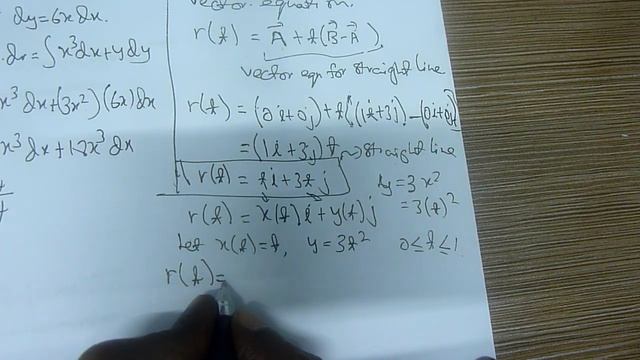 dy=6x dx.
dr = ∫x³dx+y dy
x³ dx+(3x²)(6x)dx
x³dx+12x³ dx
vector equation.
r(t) = A⃗ + t(B⃗-A⃗)
vector eqn for straight line
r(t) = (0i+0j)+t((1i+3j)-(0i+0j))
=(1i+3j)t → straight line
r(t) = ti+3tj
y=3x²
=3(t)²
r(t) = x(t)i+y(t)j
Let x(t)=t, y=3t² 0≤t≤1
r(t)=